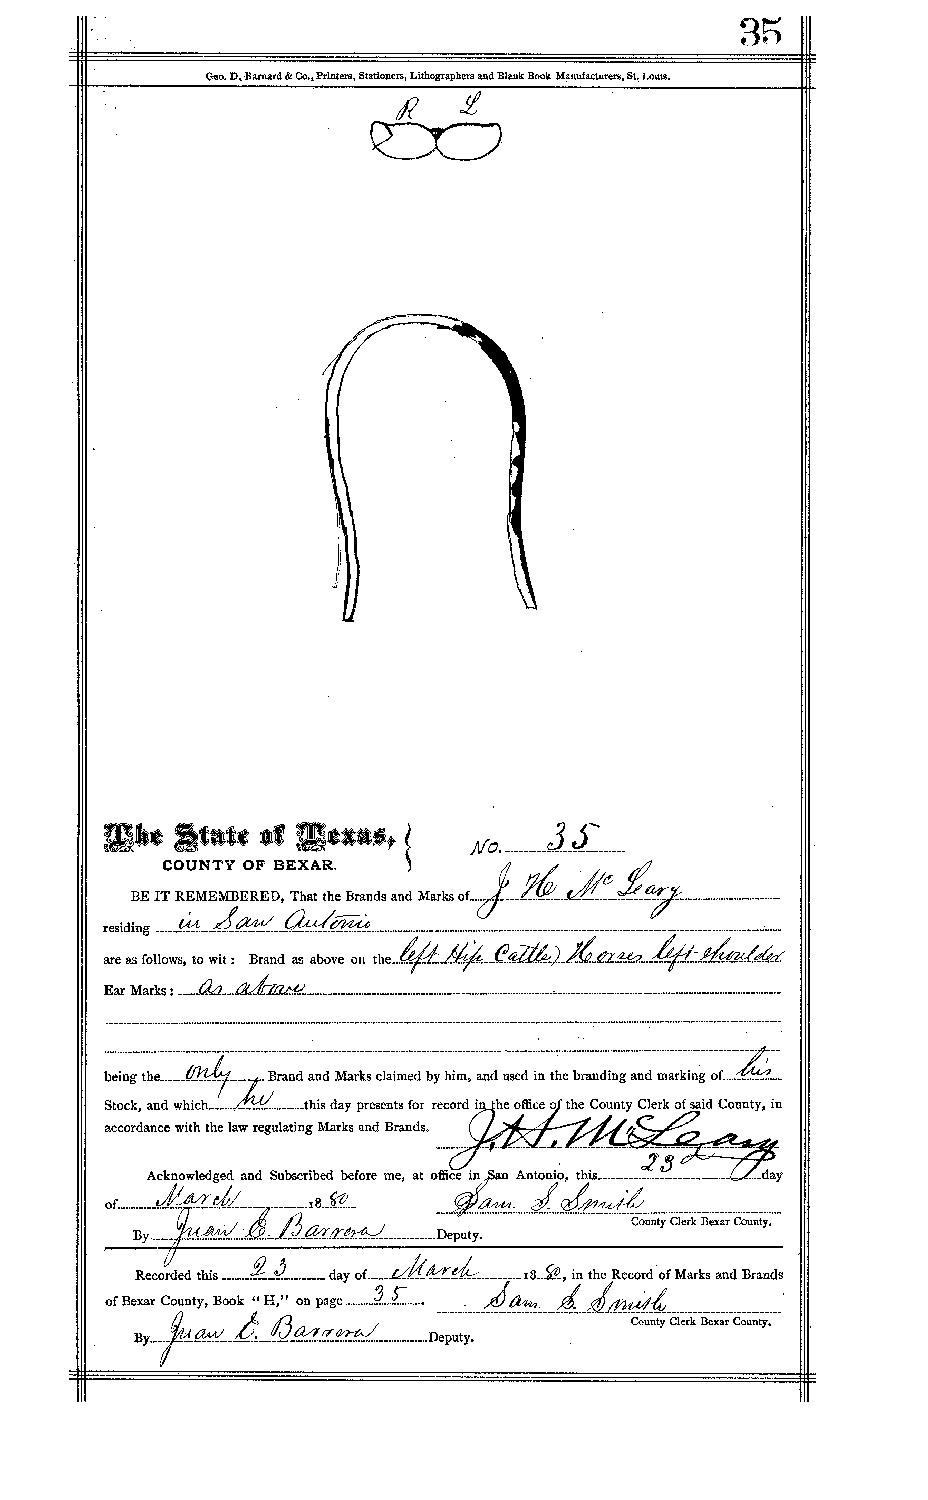 35
Geo. D. Barnard & Co., Printers, Stationers, Lithographers and Blank Book Manufacturers, St. Louis.
R L
The State of Texas, No. 35
COUNTY OF BEXAR.
BE IT REMEMBERED, That the Brands and Marks of J H McLeary
residing in San Antonio
are as follows, to wit: Brand as above on the left Hip Cattle) Horses left shoulder
Ear Marks: as above
being the only Brand and Marks claimed by him, and used in the branding and marking of his
Stock, and which he this day presents for record in the office of the County Clerk of said County, in
accordance with the law regulating Marks and Brands. J. H. McLeary
Acknowledged and Subscribed before me, at office in San Antonio, this 23 day
of March 1880 Sam. S. Smith
County Clerk Bexar County.
By Juan E. Barrera Deputy.
Recorded this 23 day of March 1880, in the Record of Marks and Brands
of Bexar County, Book "H," on page 35. Sam S. Smith
County Clerk Bexar County.
By Juan E. Barrera Deputy.